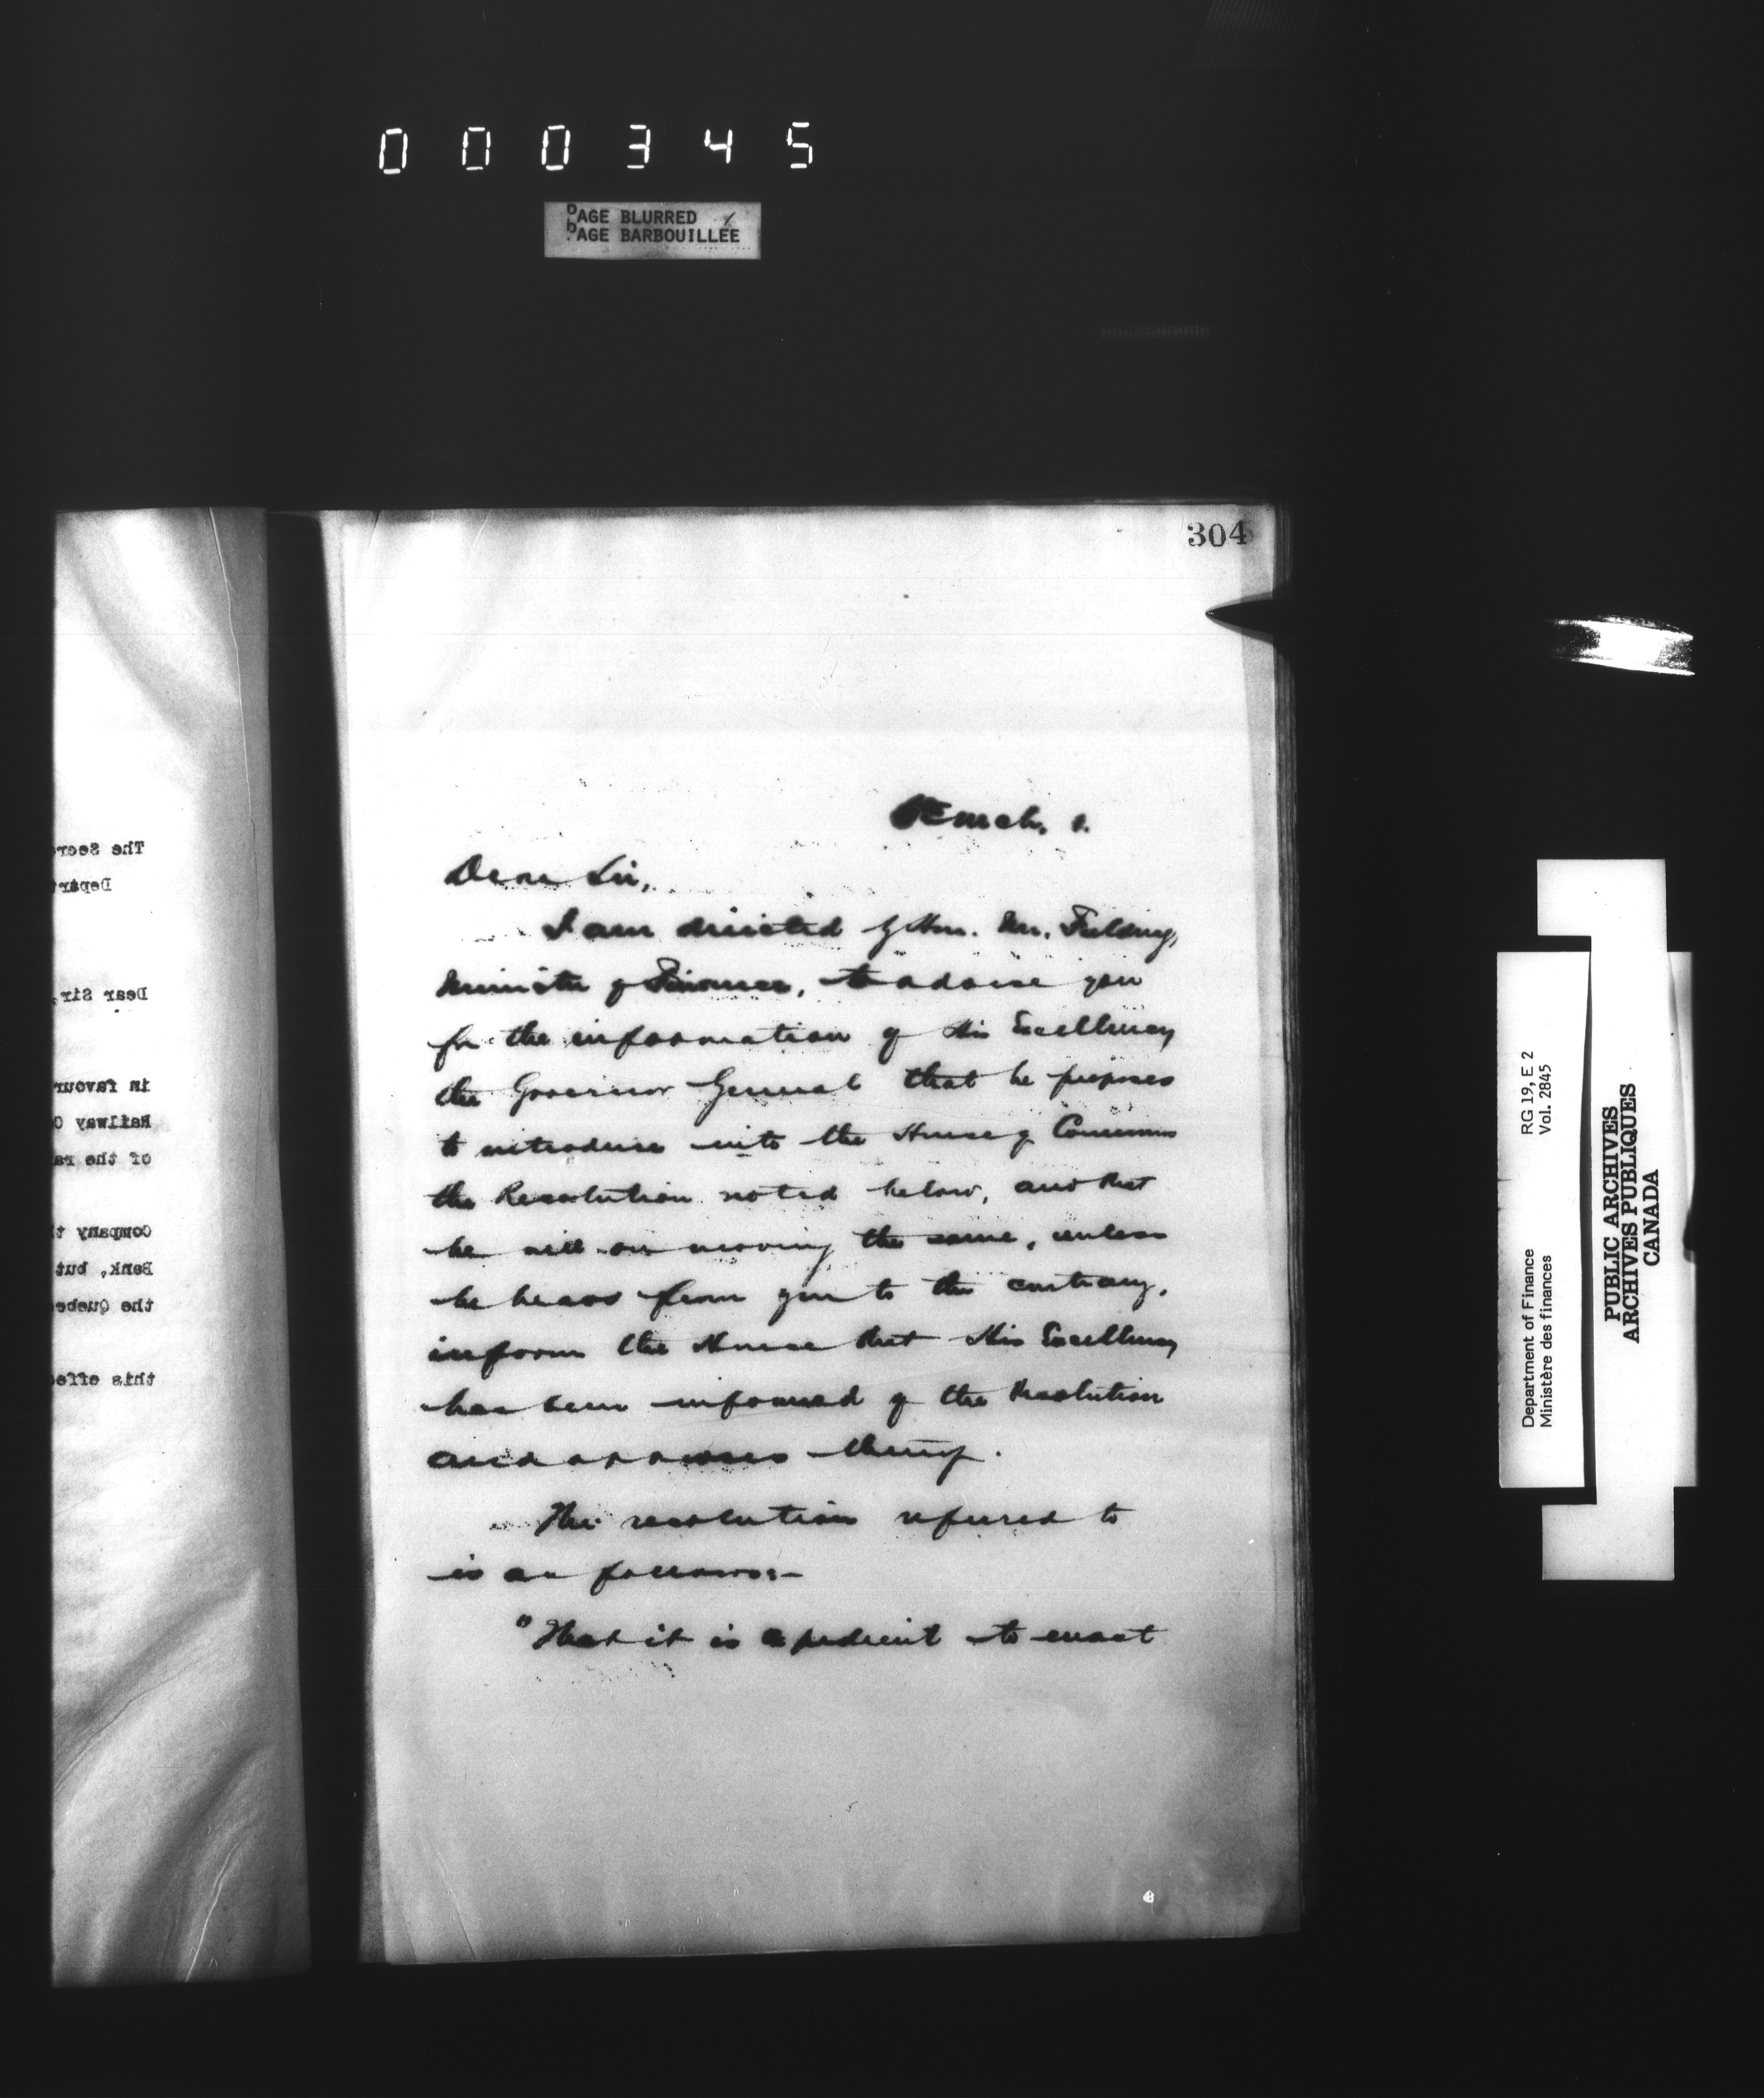 000345
PAGE BLURRED
PAGE BARBOUILLÉE
304
March 1.
Dear Sir,
I am directed by Hon. Mr. Fielding,
Minister of Finance, to advise you
for the information of His Excellency
the Governor General that he proposes
to introduce into the House of Commons
the Resolution noted below, and that
he will on moving the same, unless
he hears from you to the contrary,
inform the House that His Excellency
has been informed of the Resolution
and approves thereof.
The resolution referred to
is as follows:-
"That it is expedient to enact
The Secre
Depart
Dear Sir,
in favour
Railway C
of the ra
Company t
Bank, but
the Quebe
this effe
RG 19, E 2
Vol. 2845
Department of Finance
Ministère des finances
PUBLIC ARCHIVES
ARCHIVES PUBLIQUES
CANADA